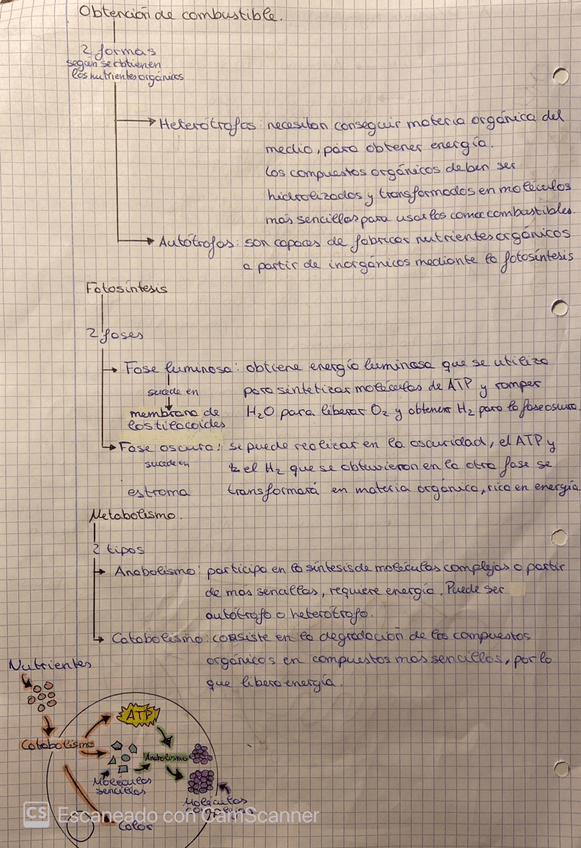 Obtención de combustible.
2 formas
según se obtienen
los nutrientes orgánicos
Heterótrofos: necesitan conseguir materia orgánica del
medio, para obtener energía.
Los compuestos orgánicos deben ser
hidrolizados y transformados en moléculas
mas sencillas para usarlos como combustibles.
Autótrofos: son capaces de fabricar nutrientes orgánicos
a partir de inorgánicos mediante la fotosíntesis
Fotosíntesis
2 fases
Fase luminosa: obtiene energía luminosa que se utiliza
sucede en para sintetizar moléculas de ATP y romper
membrana de H2O para liberar O2 y obtener H2 para la fase oscura.
los tilacoides
Fase oscura: se puede realizar en la oscuridad, el ATP y
sucede en el H2 que se obtuvieron en la otra fase se
estroma transformará en materia orgánica, rica en energía.
Metabolismo.
2 tipos
Anabolismo: participa en la síntesis de moléculas complejas a partir
de mas sencillas, requiere energía. Puede ser
autótrofo o heterótrofo.
Catabolismo: consiste en la degradación de los compuestos
orgánicos en compuestos mas sencillos, por lo
que libera energía.
Nutrientes
ATP
Catabolismo
Anabolismo
Moléculas
sencillas
Moléculas
Calor
CS Escaneado con CamScanner